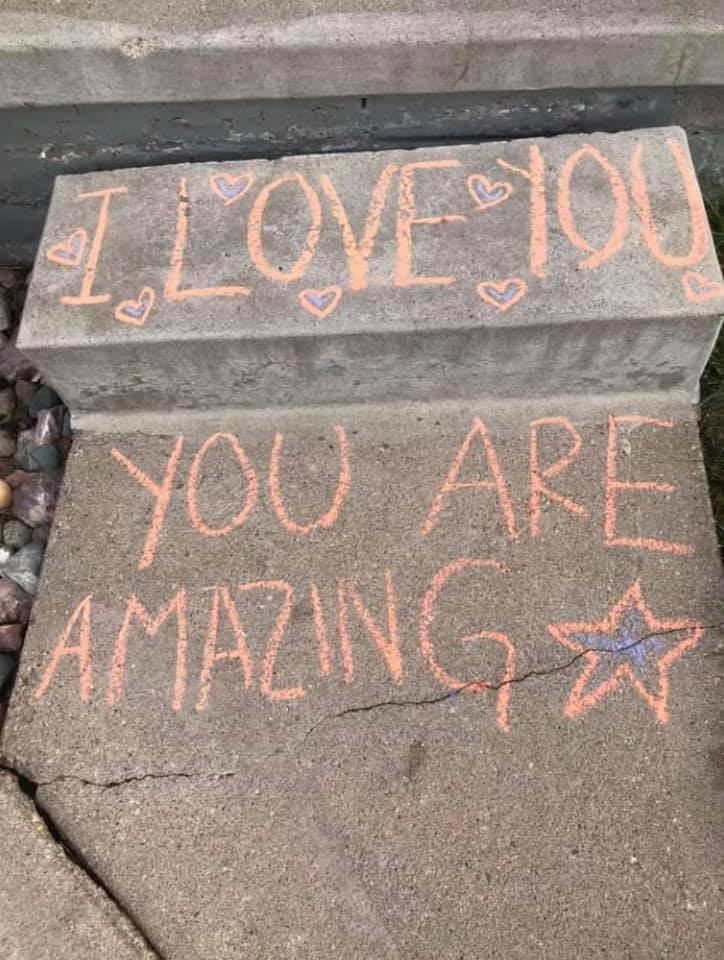 I LOVE YOU
YOU ARE
AMAZING